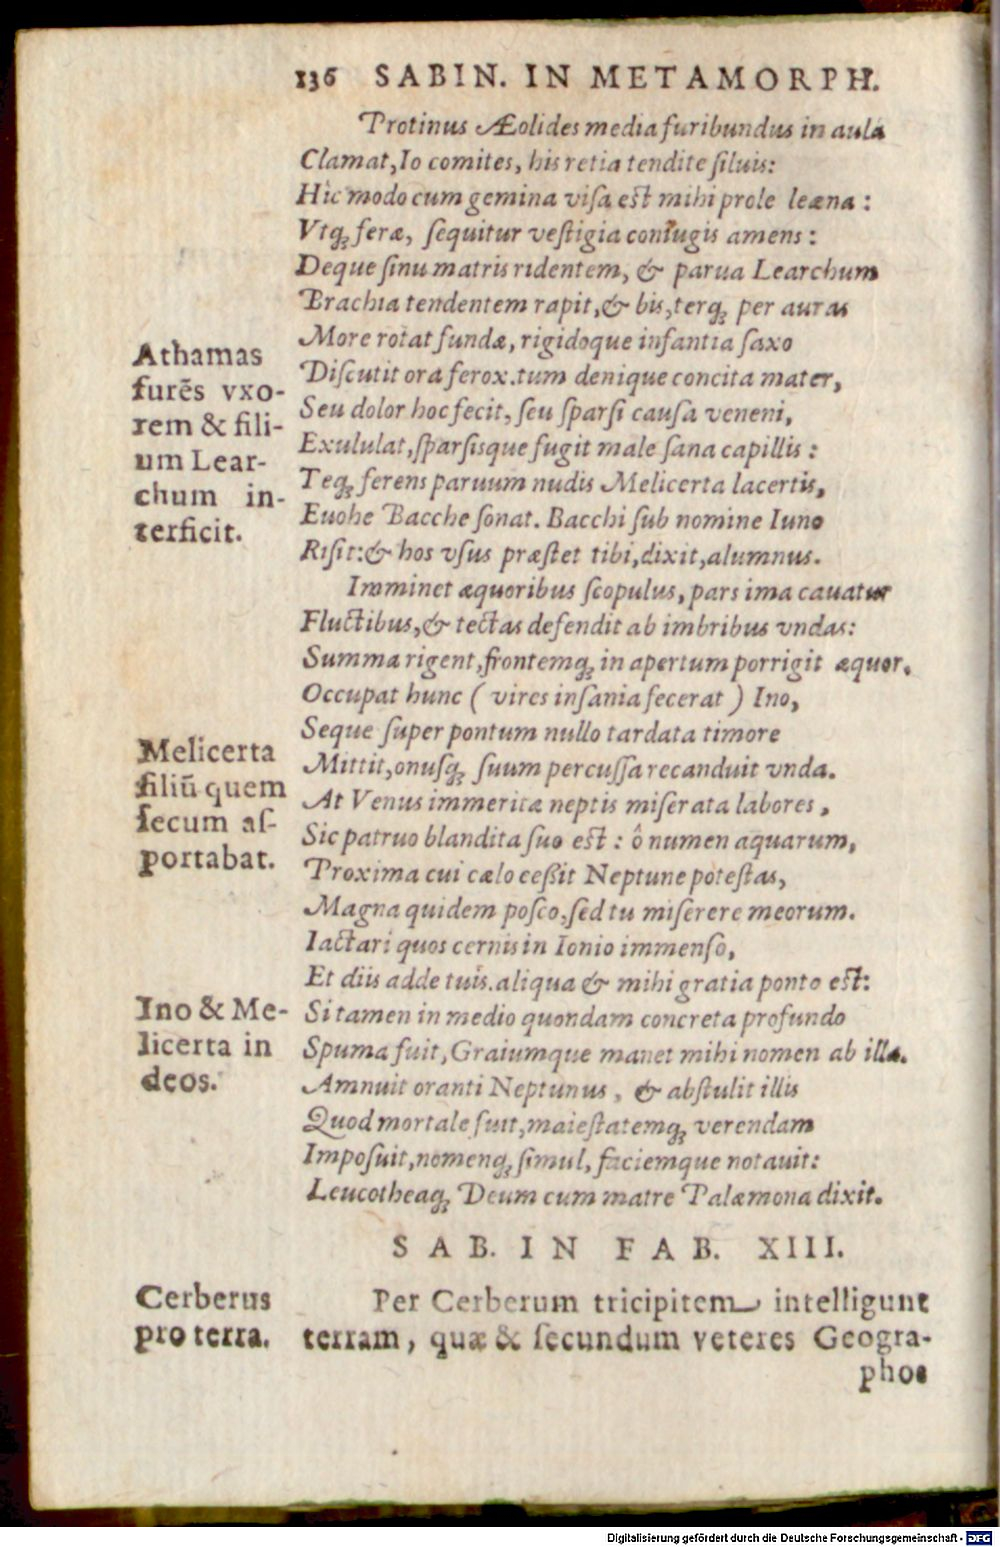 136 SABIN. IN METAMORPH.
Protinus Æolides media furibundus in aula
Clamat, Io comites, his retia tendite siluis:
Hîc modo cum gemina visa est mihi prole leæna:
Vtqꝫ feræ, sequitur vestigia coniugis amens:
Deque sinu matris ridentem, & parua Learchum
Brachia tendentem rapit, & bis, terqꝫ per auras
More rotat fundæ, rigidoque infantia saxo
Discutit ora ferox. tum denique concita mater,
Seu dolor hoc fecit, seu sparsi causa veneni,
Exululat, sparsisque fugit male sana capillis:
Teqꝫ ferens paruum nudis Melicerta lacertis,
Euohe Bacche sonat. Bacchi sub nomine Iuno
Risit: & hos vsus præstet tibi, dixit, alumnus.
Athamas
furẽs vxo-
rem & fili-
um Lear-
chum in-
terficit.
Imminet æquoribus scopulus, pars ima cauatur
Fluctibus, & tectas defendit ab imbribus vndas:
Summa rigent, frontemqꝫ in apertum porrigit æquor.
Occupat hunc (vires insania fecerat) Ino,
Seque super pontum nullo tardata timore
Mittit, onusqꝫ suum percussa recanduit vnda.
At Venus immeritæ neptis miserata labores,
Sic patruo blandita suo est: ô numen aquarum,
Proxima cui cælo cessit Neptune potestas,
Magna quidem posco, sed tu miserere meorum.
Iactari quos cernis in Ionio immenso,
Et diis adde tuis. aliqua & mihi gratia ponto est:
Melicerta
filiũ quem
secum as-
portabat.
Si tamen in medio quondam concreta profundo
Spuma fuit, Graiumque manet mihi nomen ab illa.
Amnuit oranti Neptunus, & abstulit illis
Quod mortale fuit, maiestatemqꝫ verendam
Imposuit, nomenqꝫ simul, faciemque notauit:
Leucotheaqꝫ Deum cum matre Palæmona dixit.
Ino & Me-
licerta in
deos.
SAB. IN FAB. XIII.
Per Cerberum tricipitem intelligunt
terram, quæ & secundum veteres Geogra-
phos
Cerberus
pro terra.
Digitalisierung gefördert durch die Deutsche Forschungsgemeinschaft - DFG